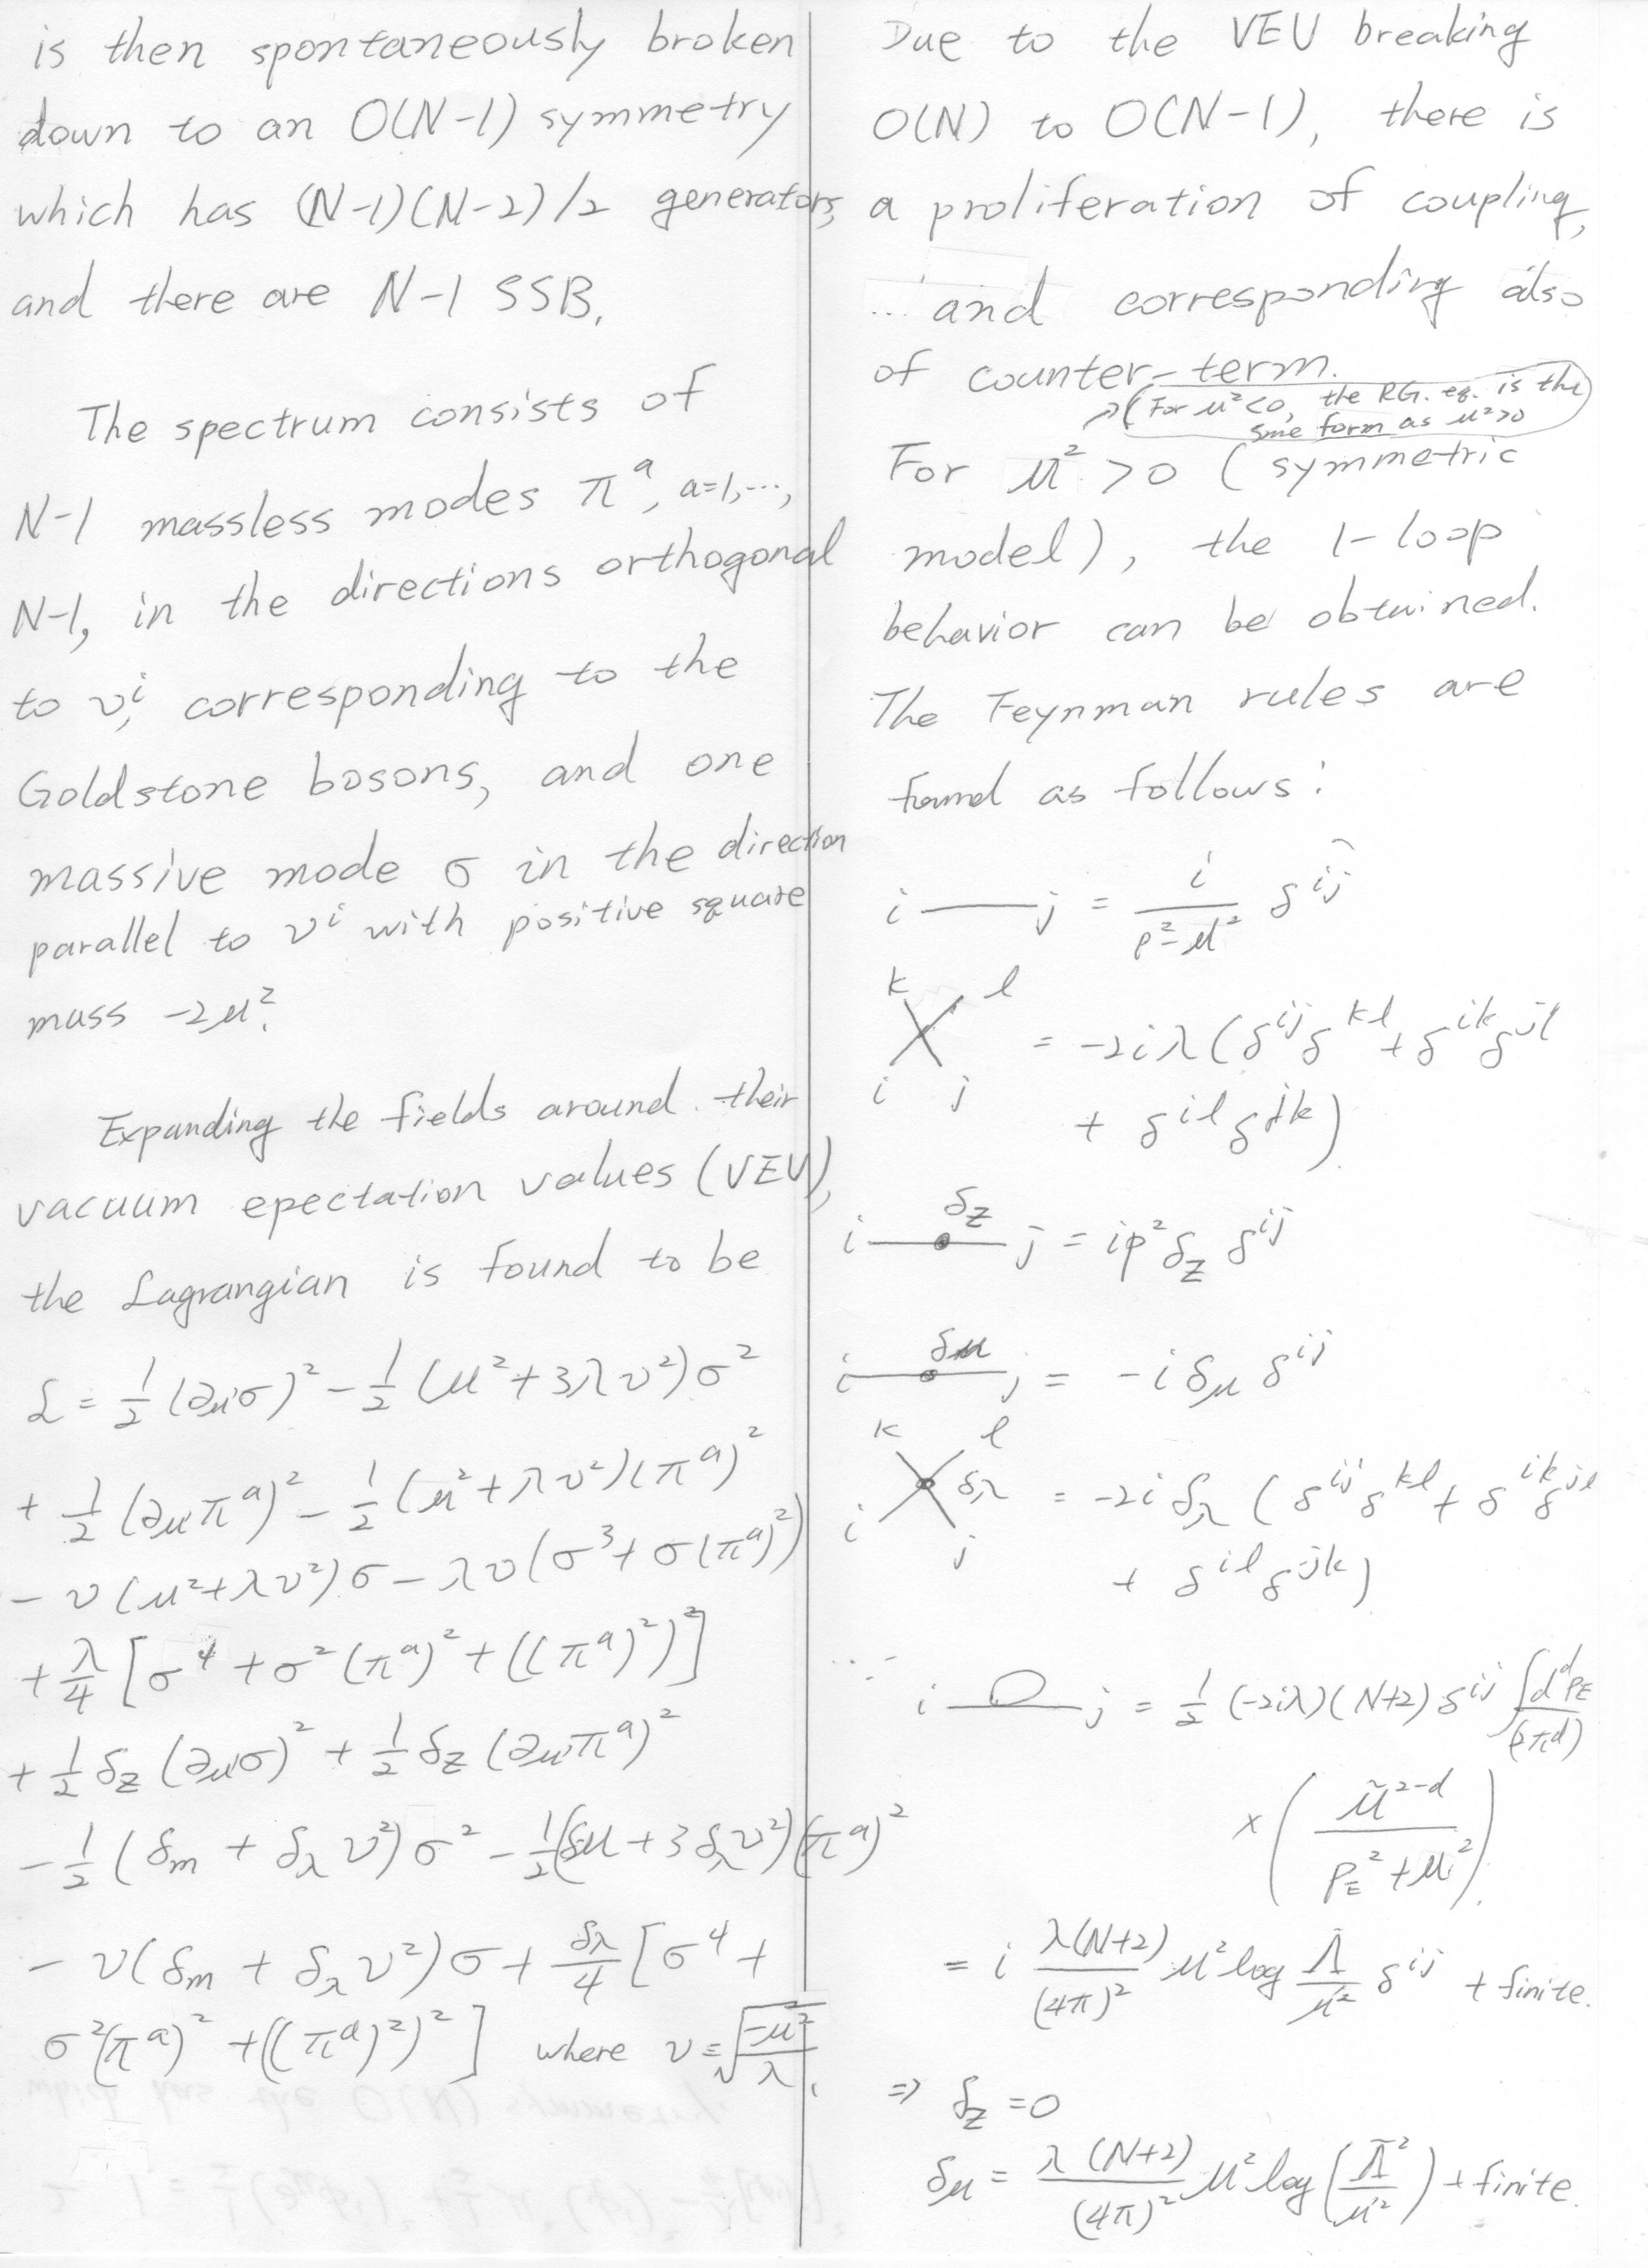 is then spontaneously broken
down to an O(N-1) symmetry
which has (N-1)(N-2)/2 generators,
and there are N-1 SSB.
The spectrum consists of
N-1 massless modes π^a, a=1,…,
N-1, in the directions orthogonal
to v^i, corresponding to the
Goldstone bosons, and one
massive mode σ in the direction
parallel to v^i with positive square
mass -2μ².
Expanding the fields around their
vacuum epectation values (VEV),
the Lagrangian is found to be
ℒ = 1/2 (∂_μσ)² - 1/2 (μ²+3λv²)σ²
+ 1/2 (∂_μπ^a)² - 1/2 (μ²+λv²)(π^a)²
- v(μ²+λv²)σ - λv(σ³+σ(π^a)²)
+ λ/4 [σ⁴+σ²(π^a)²+((π^a)²)²]
+ 1/2 δ_Z (∂_μσ)² + 1/2 δ_Z (∂_μπ^a)²
- 1/2 (δ_m + δ_λ v²)σ² - 1/2 (δμ+3δ_λv²)(π^a)²
- v(δ_m + δ_λ v²)σ + δλ/4 [σ⁴ +
σ²(π^a)² +((π^a)²)²] where v = √(-μ²/λ).
Due to the VEV breaking
O(N) to O(N-1), there is
a proliferation of coupling,
… and corresponding also
of counter-term.
(For μ²<0, the RG. eq. is the
sme form as μ²>0
For μ² > 0 (symmetric
model), the 1-loop
behavior can be obtained.
The Feynman rules are
found as follows:
i j = i/(p²-μ²) δ^ij
k l
= -2iλ(δ^ij δ^kl + δ^ik δ^jl
i j
+ δ^il δ^jk)
δ_Z
i j = ip² δ_Z δ^ij
δμ
i j = -i δ_μ δ^ij
k l
i j δλ = -2i δ_λ (δ^ij δ^kl + δ^ik δ^jl
+ δ^il δ^jk)
i j = 1/2 (-2iλ)(N+2) δ^ij ∫ d^d P_E/(2π^d)
× (μ̃^(2-d)/(P_E²+μ²))
= i λ(N+2)/(4π)² μ² log Λ̂/μ² δ^ij + finite.
⇒ δ_Z = 0
δ_μ = λ(N+2)/(4π)² μ² log(Λ̄²/μ²) + finite.